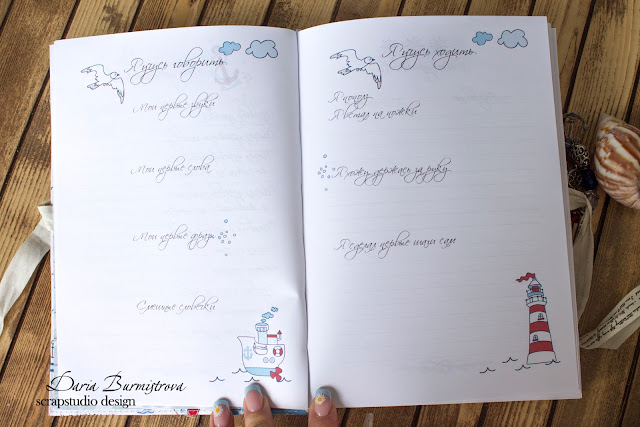 Я учусь говорить
Мои первые звуки
Мои первые слова
Мои первые фразы
Смешные словечки
Я учусь ходить
Я пополз
Я встал на ножки
Я хожу, держась за руку
Я сделал первые шаги сам
Daria Burmistrova
scrapstudio design